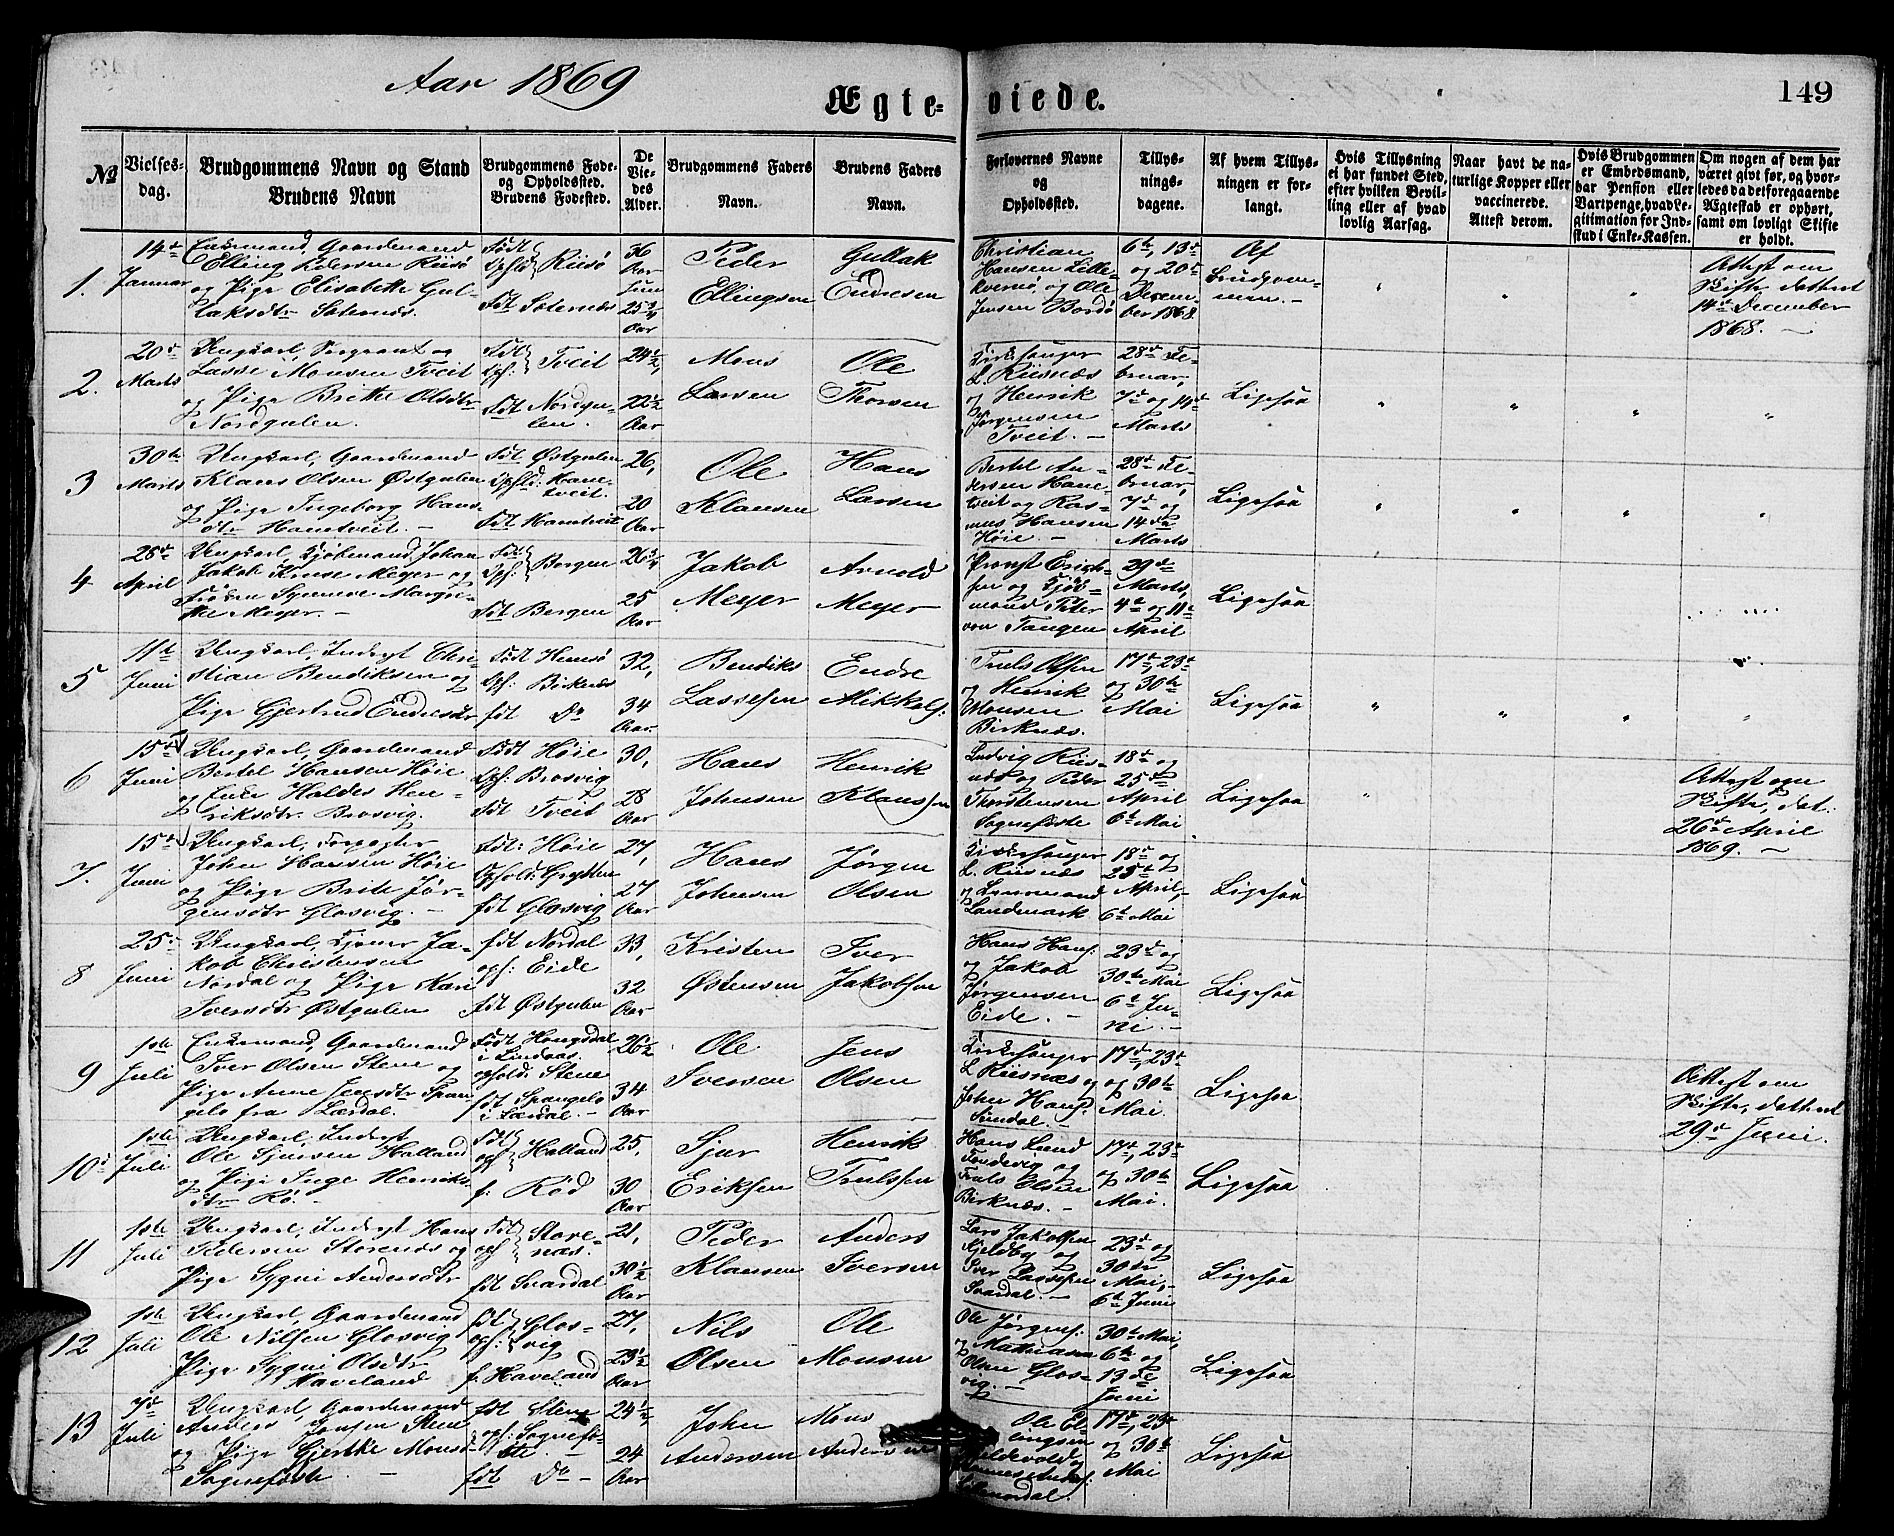 Aar 1869
Ægte-viede.
149
No
Vielses-dag.
Brudgommens Navn og Stand
Brudens Navn
Brudgommens Føde- og Opholdssted.
Brudens Fødested.
De Viedes Alder.
Brudgommens Faders Navn.
Brudens Faders Navn.
Forlovernes Navne og Opholdssted.
Tillysningsdagene.
Af hvem Tillysningen er forlangt.
Hvis Tillysning ei har fundet Sted, efter hvilken Bevilling eller af hvad lovlig Aarsag.
Naar havt de naturlige Kopper eller vaccinerede. Attest derom.
Hvis Brudgommen er Embedsmand, har Pension eller Vartpenge, hvad Legitimation for Indskud i Enke-Kassen.
Om nogen af dem har været givt før, og hvorledes da det foregaaende Ægteskab er ophørt, samt om lovligt Skifte er holdt.
1.
14de Januar
Enkemand, Gaardmand
Elling Pedersen Riisø
og Pige Elisabeth Gullaksdtr
Født Opholdt Riisø
36 Aar
25 3/4 Aar
Peder Ellingsen
Gullak Endresen
Christian Hansen Lillekvernø, og Ole Jensen Bordø
6te, 13de og 20de December 1868.
Af Brudgommen.
Attest om Skifte, dateret 14de December 1868.
2.
20de Marts
Ungkarl, Sergeant
Lasse Monsen Tveit
og Pige Brithe Olsdtr
Nordgulen.
Født Opholdt Tveit
født Nordgulen.
24 1/2,
22 1/2 Aar
Mons Larsen
Ole Thorsen
Kirkesanger L. Riisnæs
og Henrik Jørgensen Tveit.
28de Februar, 7de og 14de Marts
Ligesaa
3
30te Marts
Ungkarl, Gaardmand
Klaus Olsen Østgulen
og Pige Ingeborg Hansdtr Hantveit.
Født Østgulen
Ophold: Hanetveit.
født Hantveit
26,
20 Aar
Ole Klausen
Hans Larsen
Bertel Andersen Hanetveit og Rasmus Hansen Høie.
28de Februar, 7de og 14de Marts
Ligesaa
4
28de April
Ungkarl, Kjøbmand Johan
Jakob Kruse Meyer og
Frøken Synneve Margrethe Meyer.
Født Oph: Bergen
født Bergen
26 3/4
25 Aar
Jakob Meyer
Arnold Meyer
Provst Erichsen og Kjøbmand Peter von Tangen
29de Marts, 4de og 11te April
Ligesaa
5
11te Juni
Ungkarl, Inderst Christian Bendiksen og
Pige Gjertrud Endresdtr
Født Hemsø
Oph: Birknæs
født Do
32,
34 Aar.
Bendiks Lassesen
Endre Mikkels.
Truls Olsen
og Henrik Monsen Birknæs.
17de, 23de og 30te Mai
Ligesaa
6
15de Juni
Ungkarl, Gaardmand
Bertel Hansen Høie
og Enke Haldes Henriksdtr. Brosvig.
Født Høie
Oph: Brosvig
født Tveit
30,
28 Aar
Hans Johnsen
Henrik Klaussen
Ludvig Riisnæs og Peder Thorstensen Sognefæste
18de og 25de April
6te Mai
Ligesaa
Attest om Skifte, dat. 26de April 1869.
7.
15de Juni
Ungkarl, Forpagter
John Hansen Høie
og Pige Brite Jørgensdtr Glosvig.
født: Høie
født Glosvig
27,
27 Aar
Hans Johnsen
Jørgen Olsen
Kirkesanger L. Riisnæs
og Lensmand Landmark
18de og 25de April,
6te Mai
Ligesaa
8
25de Juni
Ungkarl, Tjener Jakob Christensen
Nordal og Pige Kari
Iversdtr Østgulen
født Nordal
oph: Eide
født Østgulen
33,
32 Aar
Kristen Østensen
Iver Jakobsen
Hans Hans.
og Jakob Jørgensen Eide.
23de og 30te Mai
6te Juni.
Ligesaa
9
1ste Juli
Enkemand, Gaardmand
Iver Olsen Stene og
Pige Anne Jensdtr Spangelo fra Lærdal.
Født Hougsdal i Lindaas.
ophold: Stene
født Spangelo i Lærdal.
26 1/2
34 Aar
Ole Iversen
Jens Olsen
Kirkesanger L. Riisnæs og
John Hans. Sindal.
17de, 23de og 30te Mai.
Ligesaa
Attest om Skifte, dateret 29de Juni.
10
1ste Juli
Ungkarl, Inderst
Ole Sjursen Halland
og Pige Inge Henriksdtr Rø.
Født oph Halland
f: Rød
25,
30 Aar
Sjur Eriksen
Henrik Trulssen
Hans Lund Fondevig og
Truls Olsen Birknæs.
17de, 23de og 30te Mai.
Ligesaa
11
1ste Juli
Ungkarl, Inderst Hans
Pedersen Storenæs og
Pige Sygni Andersdtr
Født oph Storenæs.
født Svardal
21,
30 1/2 Aar
Peder Klausen
Anders Iversen
Lars Jakobsen Kjeldby og
Iver Lassesen Svardal.
23de og 30de Mai,
6te Juni
Ligesaa
12
1ste Juli
Ungkarl, Gaardmand
Ole Nilsen Glosvig
Pige Sygni Olsdtr
Haveland
født oph: Glosvig
f. Haveland
27,
23 1/2 Aar
Nils Olsen
Ole Monsen
Ole Jørgens.
og Mathias Olsen Glosvig.
30te Mai, 6te og 13de Juni
Ligesaa
13
7de Juli
Ungkarl, Gaardmand
Anders Jonsen Stene
og Pige Gjertke Monsdtr
Sognefæste
født Stene
oph: Sognefæste
født Do
24 1/2
24 Aar
John Andersen
Mons Andersen
Ole Ellingsen
17de, 23de og 30te Mai
Ligesaa